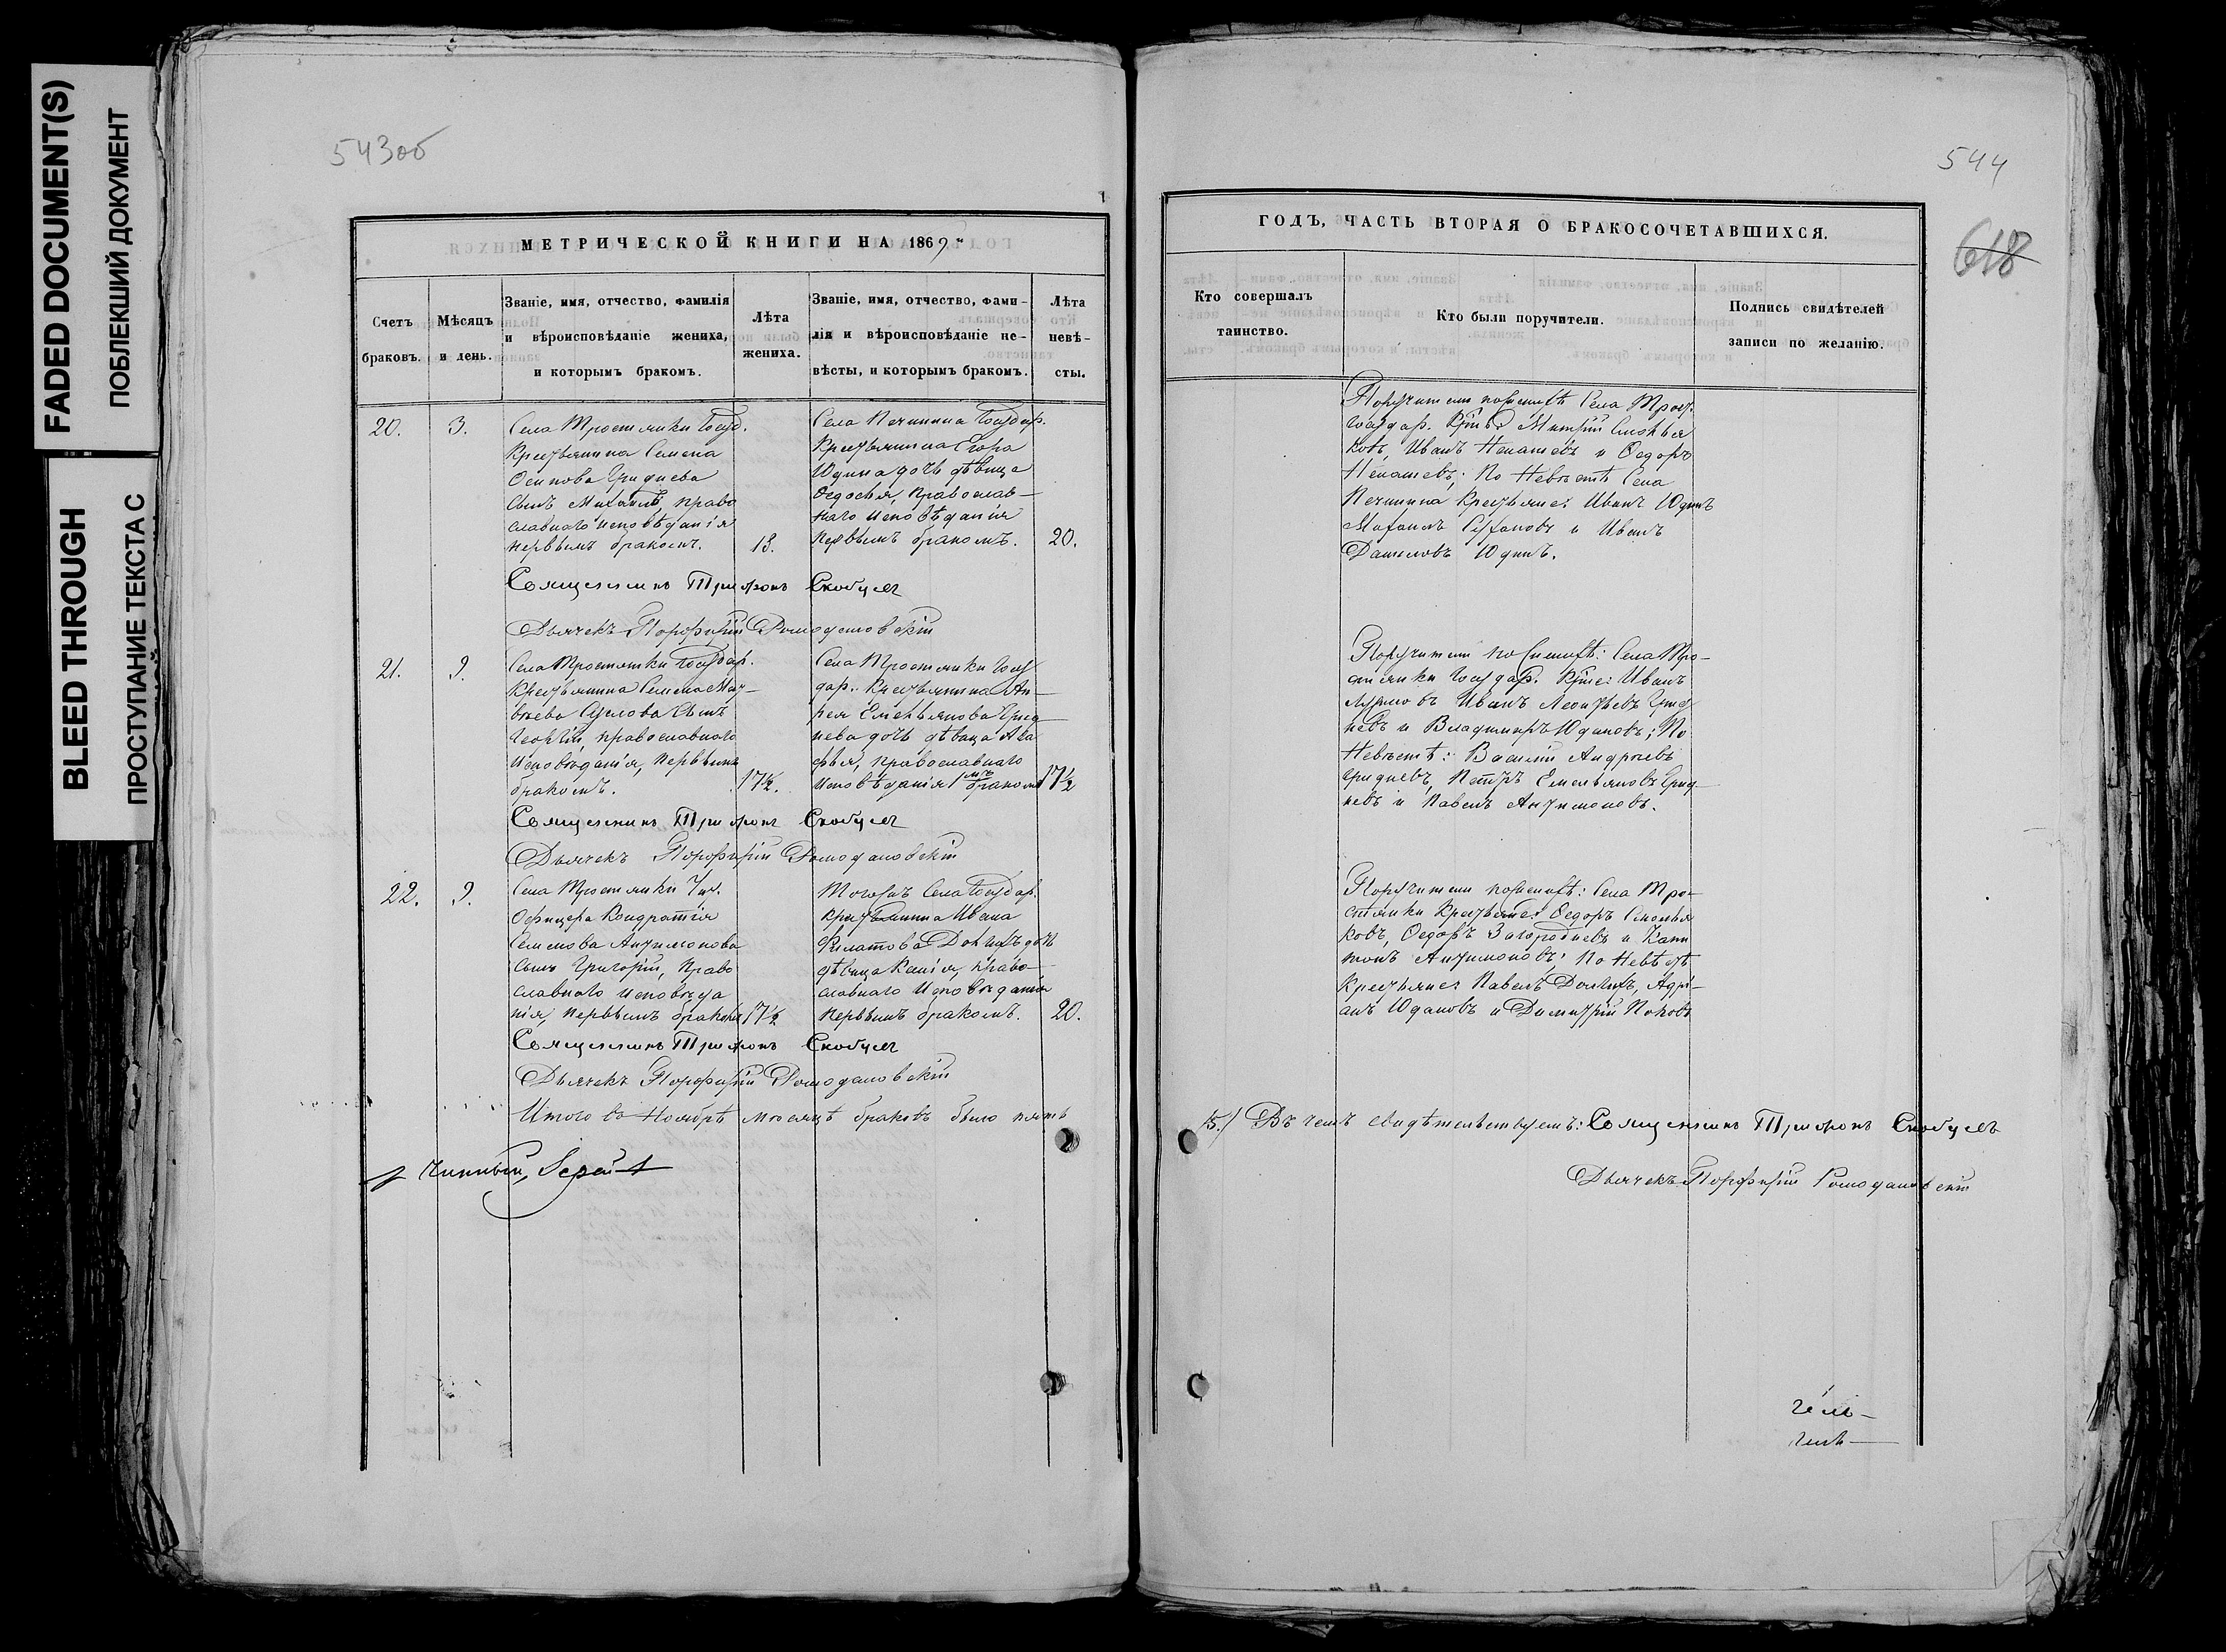 FADED DOCUMENT(S)
ПОБЛЕКШИЙ ДОКУМЕНТ
BLEED THROUGH
ПРОСТУПАНИЕ ТЕКСТА С
543об
МЕТРИЧЕСКОЙ КНИГИ НА 1869
Счетъ браковъ.
Мѣсяцъ и день.
Званіе, имя, отчество, фамилія
и вѣроисповѣданіе жениха,
и которымъ бракомъ.
Лѣта
жениха.
Званіе, имя, отчество, фами-
лія и вѣроисповѣданіе не-
вѣсты, и которымъ бракомъ.
Лѣта
невѣ-
сты.
20.
3.
Села Тростянки Госуд.
Крестьянина Семена
Осипова Гриднева
сынъ Михаилъ, право
славнаго исповѣданія
первымъ бракомъ.
18.
Села Печинина Государ.
Крестьянина Егора
Юдина дочь дѣвица
Ѳедосья, православ-
наго исповѣданія
первымъ бракомъ.
20.
Священникъ Трифонъ Скобцевъ
Дьячекъ Порфирій Ромодановскій
21.
9.
Села Тростянки Государ.
Крестьянина Семена Мат-
вѣева Суслова сынъ
Георгій, православнаго
исповѣданія, первымъ
бракомъ.
17½.
Села Тростянки Госу
дар. Крестьянина Ан-
рея Емельянова Грид-
нева дочь дѣвица Ага
фья, православнаго
исповѣданія 1мъ бракомъ
17½
Священникъ Трифонъ Скобцевъ
Дьячекъ Порфирій Ромодановскій
22.
9.
Села Тростянки Ун.
Офицера Кондратія
Семенова Антимонова
сынъ Григорій, право
славнаго исповѣда
нія, первымъ бракомъ
17½
Тогожъ Села Государ.
крестьянина Ивана
Филатова Долгихъ дочь
дѣвица Ксенія, право-
славнаго исповѣданія
первымъ бракомъ.
20.
Священникъ Трифонъ Скобцевъ
Дьячекъ Порфирій Ромодановскій
Итого въ Ноябрѣ мѣсяцѣ браковъ было пять
544
618
ГОДЪ, ЧАСТЬ ВТОРАЯ О БРАКОСОЧЕТАВШИХСЯ.
Кто совершалъ
таинство.
Кто были поручители.
Подпись свидѣтелей
записи по желанію.
Поручители по женихѣ Села Трост.
Государ. Крес. Митрій Смолья
ковъ, Иванъ Ненашевъ и Ѳедоръ
Ненашевъ; По Невѣстѣ Села
Печинина Крестьяне: Иванъ Юдинъ
и Иванъ
Даниловъ Юдинъ.
Поручители по женихѣ: Села Тро-
стянки Государ. Крес: Иванъ
Иванъ Леонтьевъ Грид
невъ и Владимиръ Юдаковъ; По
Невѣстѣ: Василій Андреевъ
Гридневъ, Петръ Емельяновъ Грид-
невъ и Павелъ Антимоновъ.
Поручители по женихѣ: Села Тро-
стянки Крестьяне: Ѳедоръ Смолья
ковъ, Ѳедоръ Загородневъ и Капи
тонъ Антимоновъ; По Невѣстѣ
Крестьяне: Павелъ Долгихъ, Адрі-
анъ Юдаковъ и Димитрій Поповъ
/5./ Въ чемъ свидѣтельствуемъ: Священникъ Трифонъ Скобцевъ
Дьячекъ Порфирій Ромодановскій